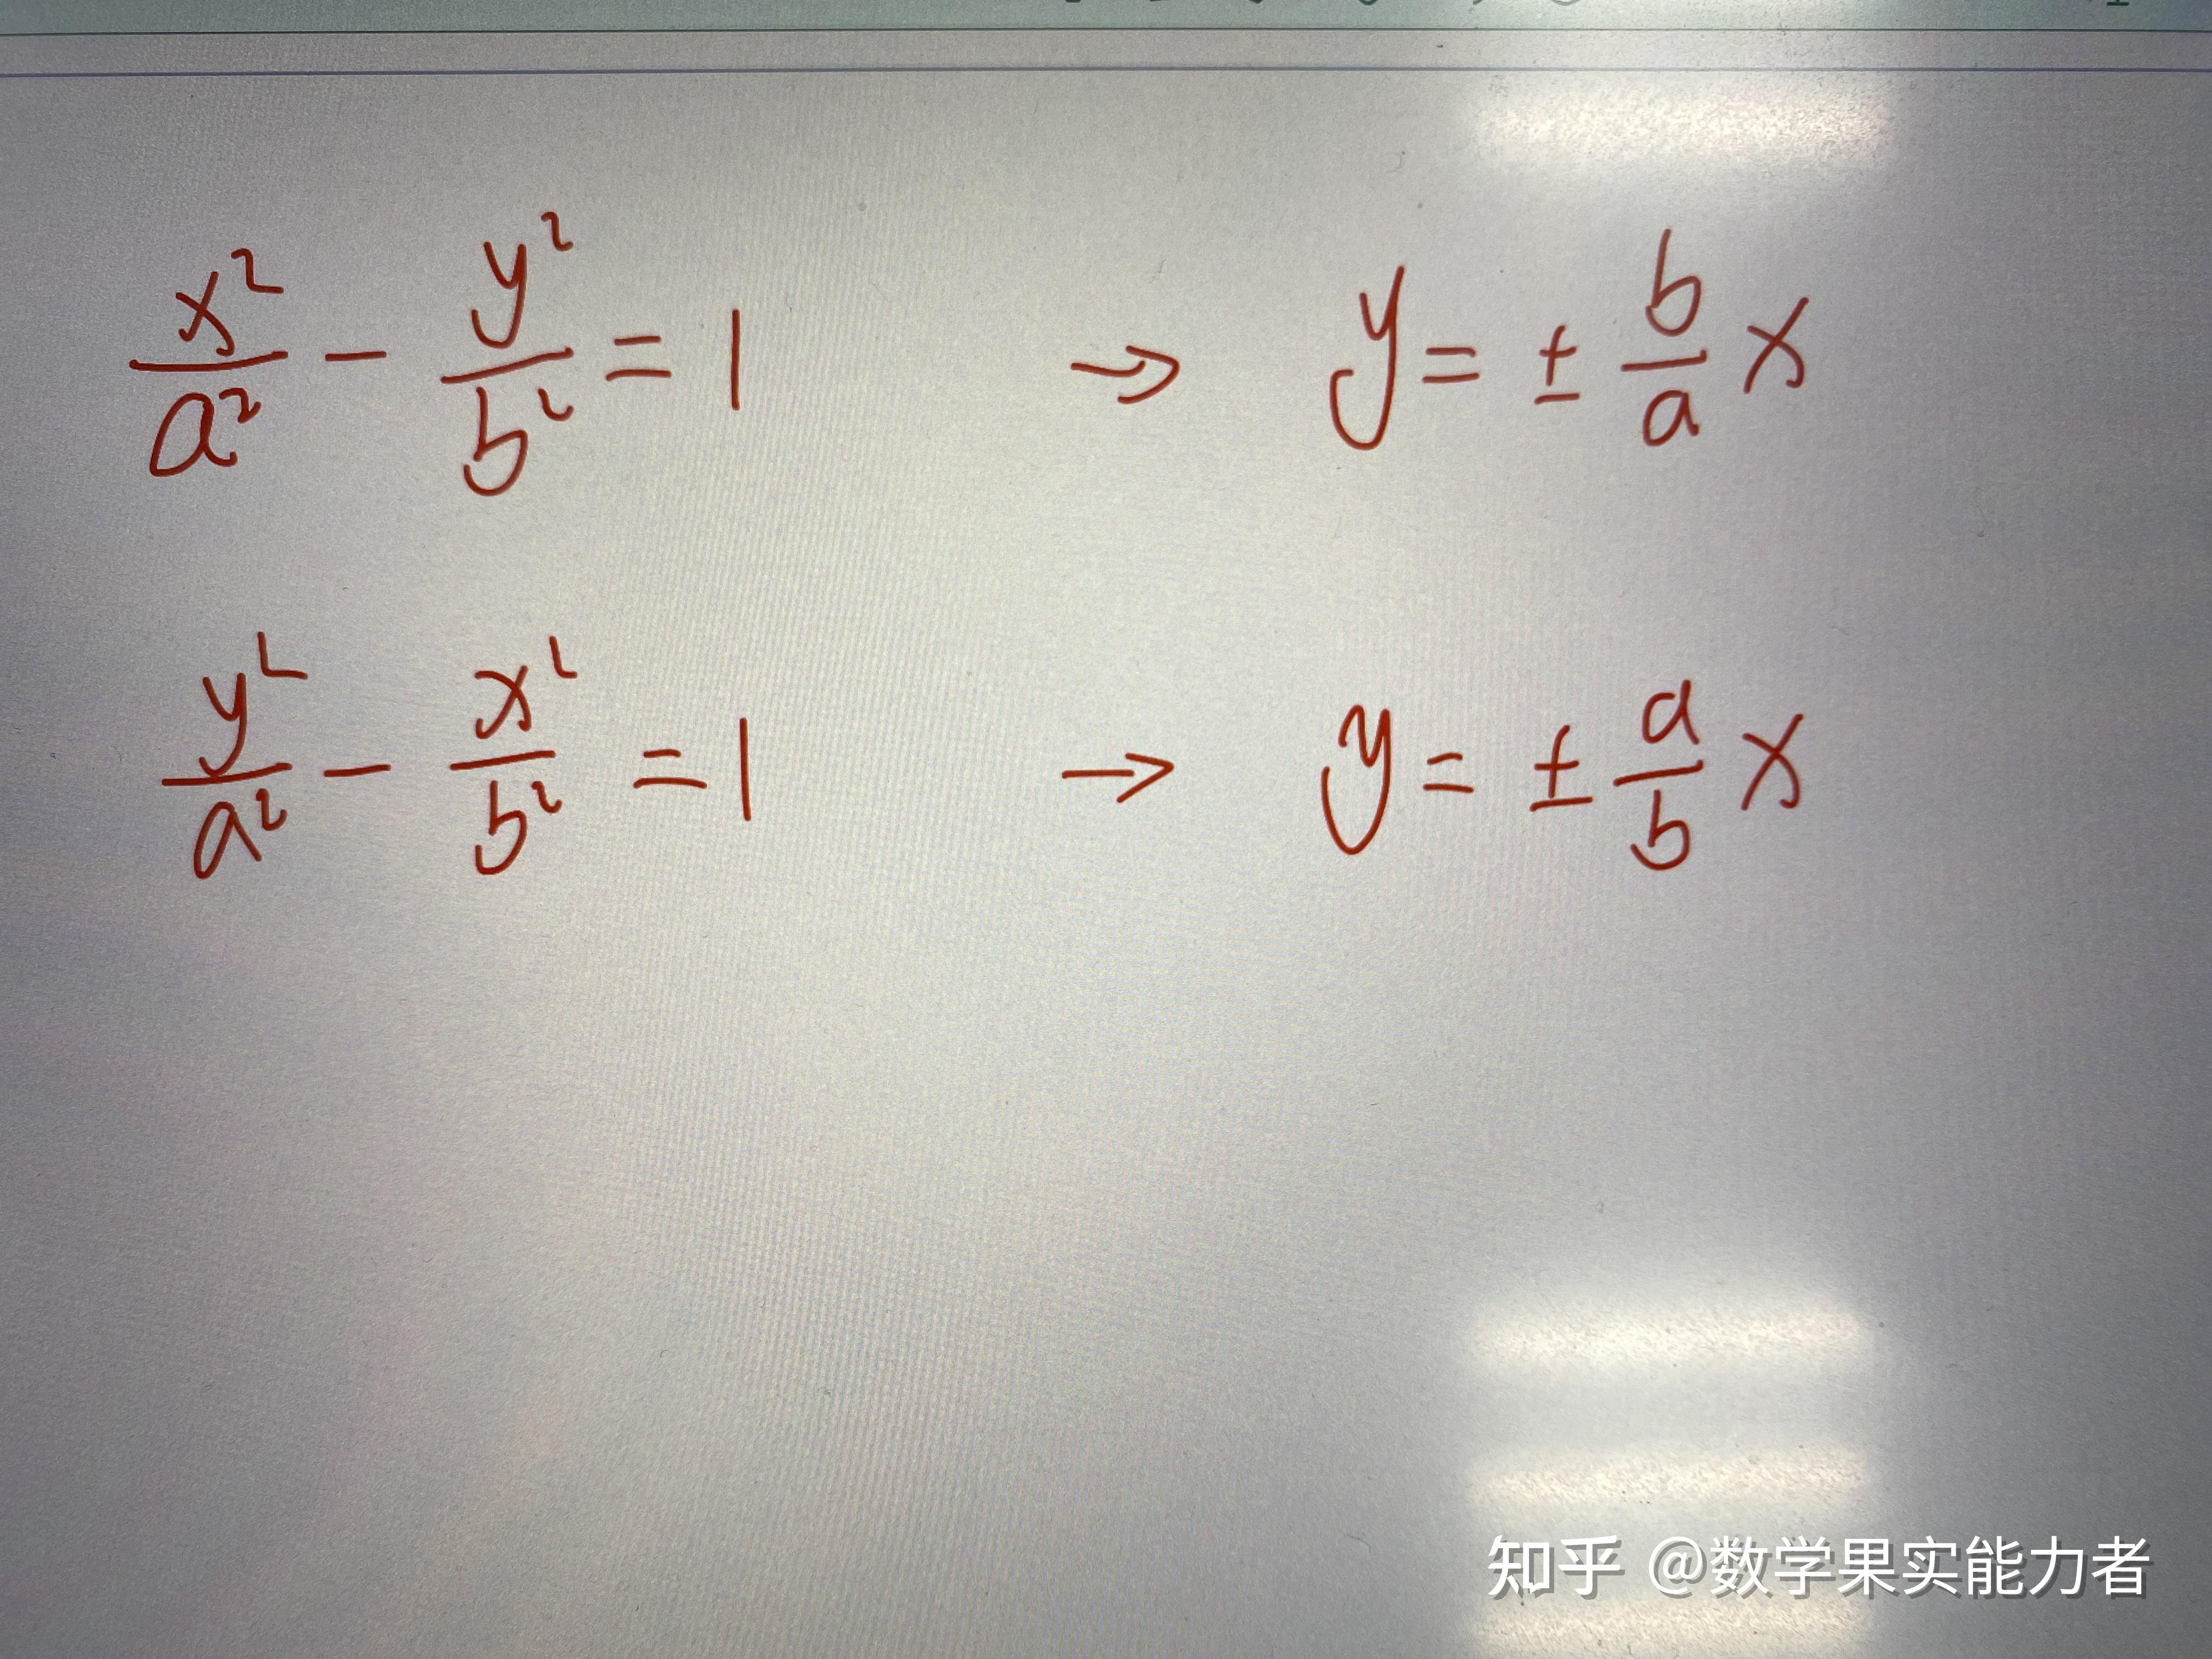 x²/a² - y²/b² = 1 → y = ± b/a x
y²/a² - x²/b² = 1 → y = ± a/b x
知乎 @数学果实能力者